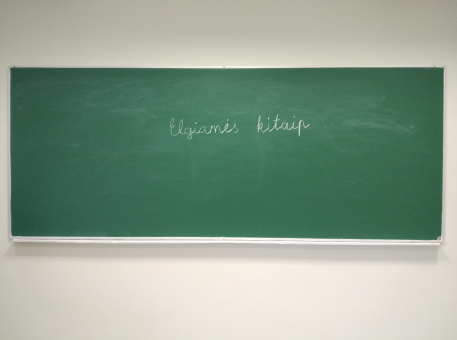 Elgiamės kitaip